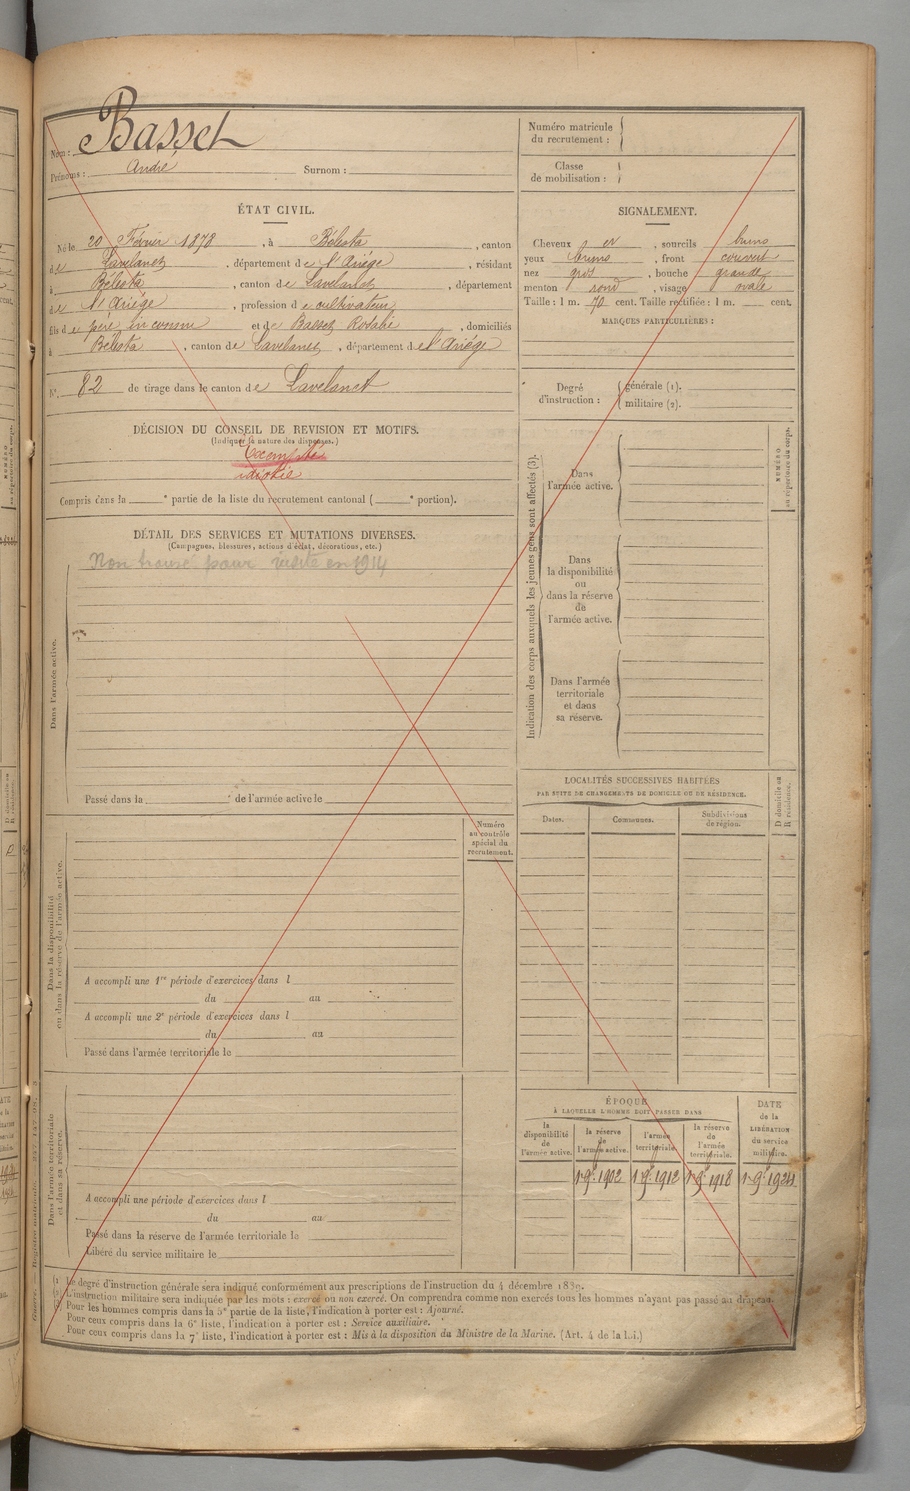 Nom : Basset
Prénoms : André Surnom :
Numéro matricule du recrutement :
Classe de mobilisation :
ÉTAT CIVIL.
Né le 20 Février 1878, à Bélesta, canton
de Lavelanet, département de l'Ariège, résidant
à Bélesta, canton de Lavelanet, département
de l'Ariège, profession de cultivateur
fils de père inconnu et de Basset Rosalie, domiciliés
à Bélesta, canton de Lavelanet, département de l'Ariège
N° 82 de tirage dans le canton de Lavelanet
SIGNALEMENT.
Cheveux et, sourcils bruns
yeux bruns, front couvert
nez gros, bouche grande
menton rond, visage ovale
Taille : 1 m. 70 cent. Taille rectifiée : 1 m. cent.
MARQUES PARTICULIÈRES :
Degré d'instruction : générale (1).
militaire (2).
DÉCISION DU CONSEIL DE REVISION ET MOTIFS.
(Indiquer la nature des dispenses.)
Exempté
idiotie
Compris dans la e partie de la liste du recrutement cantonal ( e portion).
DÉTAIL DES SERVICES ET MUTATIONS DIVERSES.
(Campagnes, blessures, actions d'éclat, décorations, etc.)
Non trouvé pour visite en 1914
Dans l'armée active.
Passé dans la de l'armée active le
Indication des corps auxquels les jeunes gens sont affectés (3).
NUMÉRO
au répertoire du corps.
Dans
l'armée active.
Dans
la disponibilité
ou
dans la réserve
de
l'armée active.
Dans l'armée
territoriale
et dans
sa réserve.
LOCALITÉS SUCCESSIVES HABITÉES
PAR SUITE DE CHANGEMENTS DE DOMICILE OU DE RÉSIDENCE.
Dates.
Communes.
Subdivisions
de région.
D domicile ou
R résidence.
Numéro
au contrôle
spécial du
recrutement.
Dans la disponibilité
ou dans la réserve de l'armée active.
A accompli une 1re période d'exercices dans l
du au
A accompli une 2e période d'exercices dans l
du au
Passé dans l'armée territoriale le
Dans l'armée territoriale
et dans sa réserve.
A accompli une période d'exercices dans l
du au
Passé dans la réserve de l'armée territoriale le
Libéré du service militaire le
ÉPOQUE
À LAQUELLE L'HOMME DOIT PASSER DANS
la
disponibilité
de
l'armée active.
la réserve
de
l'armée active.
l'armée
territoriale.
la réserve
de
l'armée
territoriale.
DATE
de la
LIBÉRATION
du service
militaire.
1 9e 1902 1 9e 1912 1 9e 1918 1 9e 1924
(1) Le degré d'instruction générale sera indiqué conformément aux prescriptions de l'instruction du 4 décembre 1889.
(2) L'instruction militaire sera indiquée par les mots : exercé ou non exercé. On comprendra comme non exercés tous les hommes n'ayant pas passé au drapeau.
(3) Pour les hommes compris dans la 5e partie de la liste, l'indication à porter est : Ajourné.
Pour ceux compris dans la 6e liste, l'indication à porter est : Service auxiliaire.
Pour ceux compris dans la 7e liste, l'indication à porter est : Mis à la disposition du Ministre de la Marine. (Art. 4 de la Loi.)